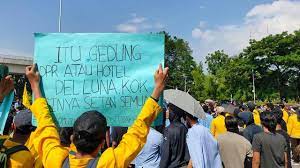 ITU GEDUNG
DPR ATAU HOTEL
DEL LUNA KOK
ISINYA SETAN SEMUA